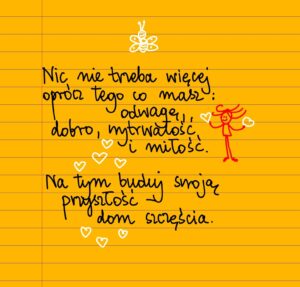 Nic nie trzeba więcej
oprócz tego co masz:
odwagą,
dobro, wytrwałość
i miłość.
Na tym buduj swoją
przyszłość –
dom szczęścia.